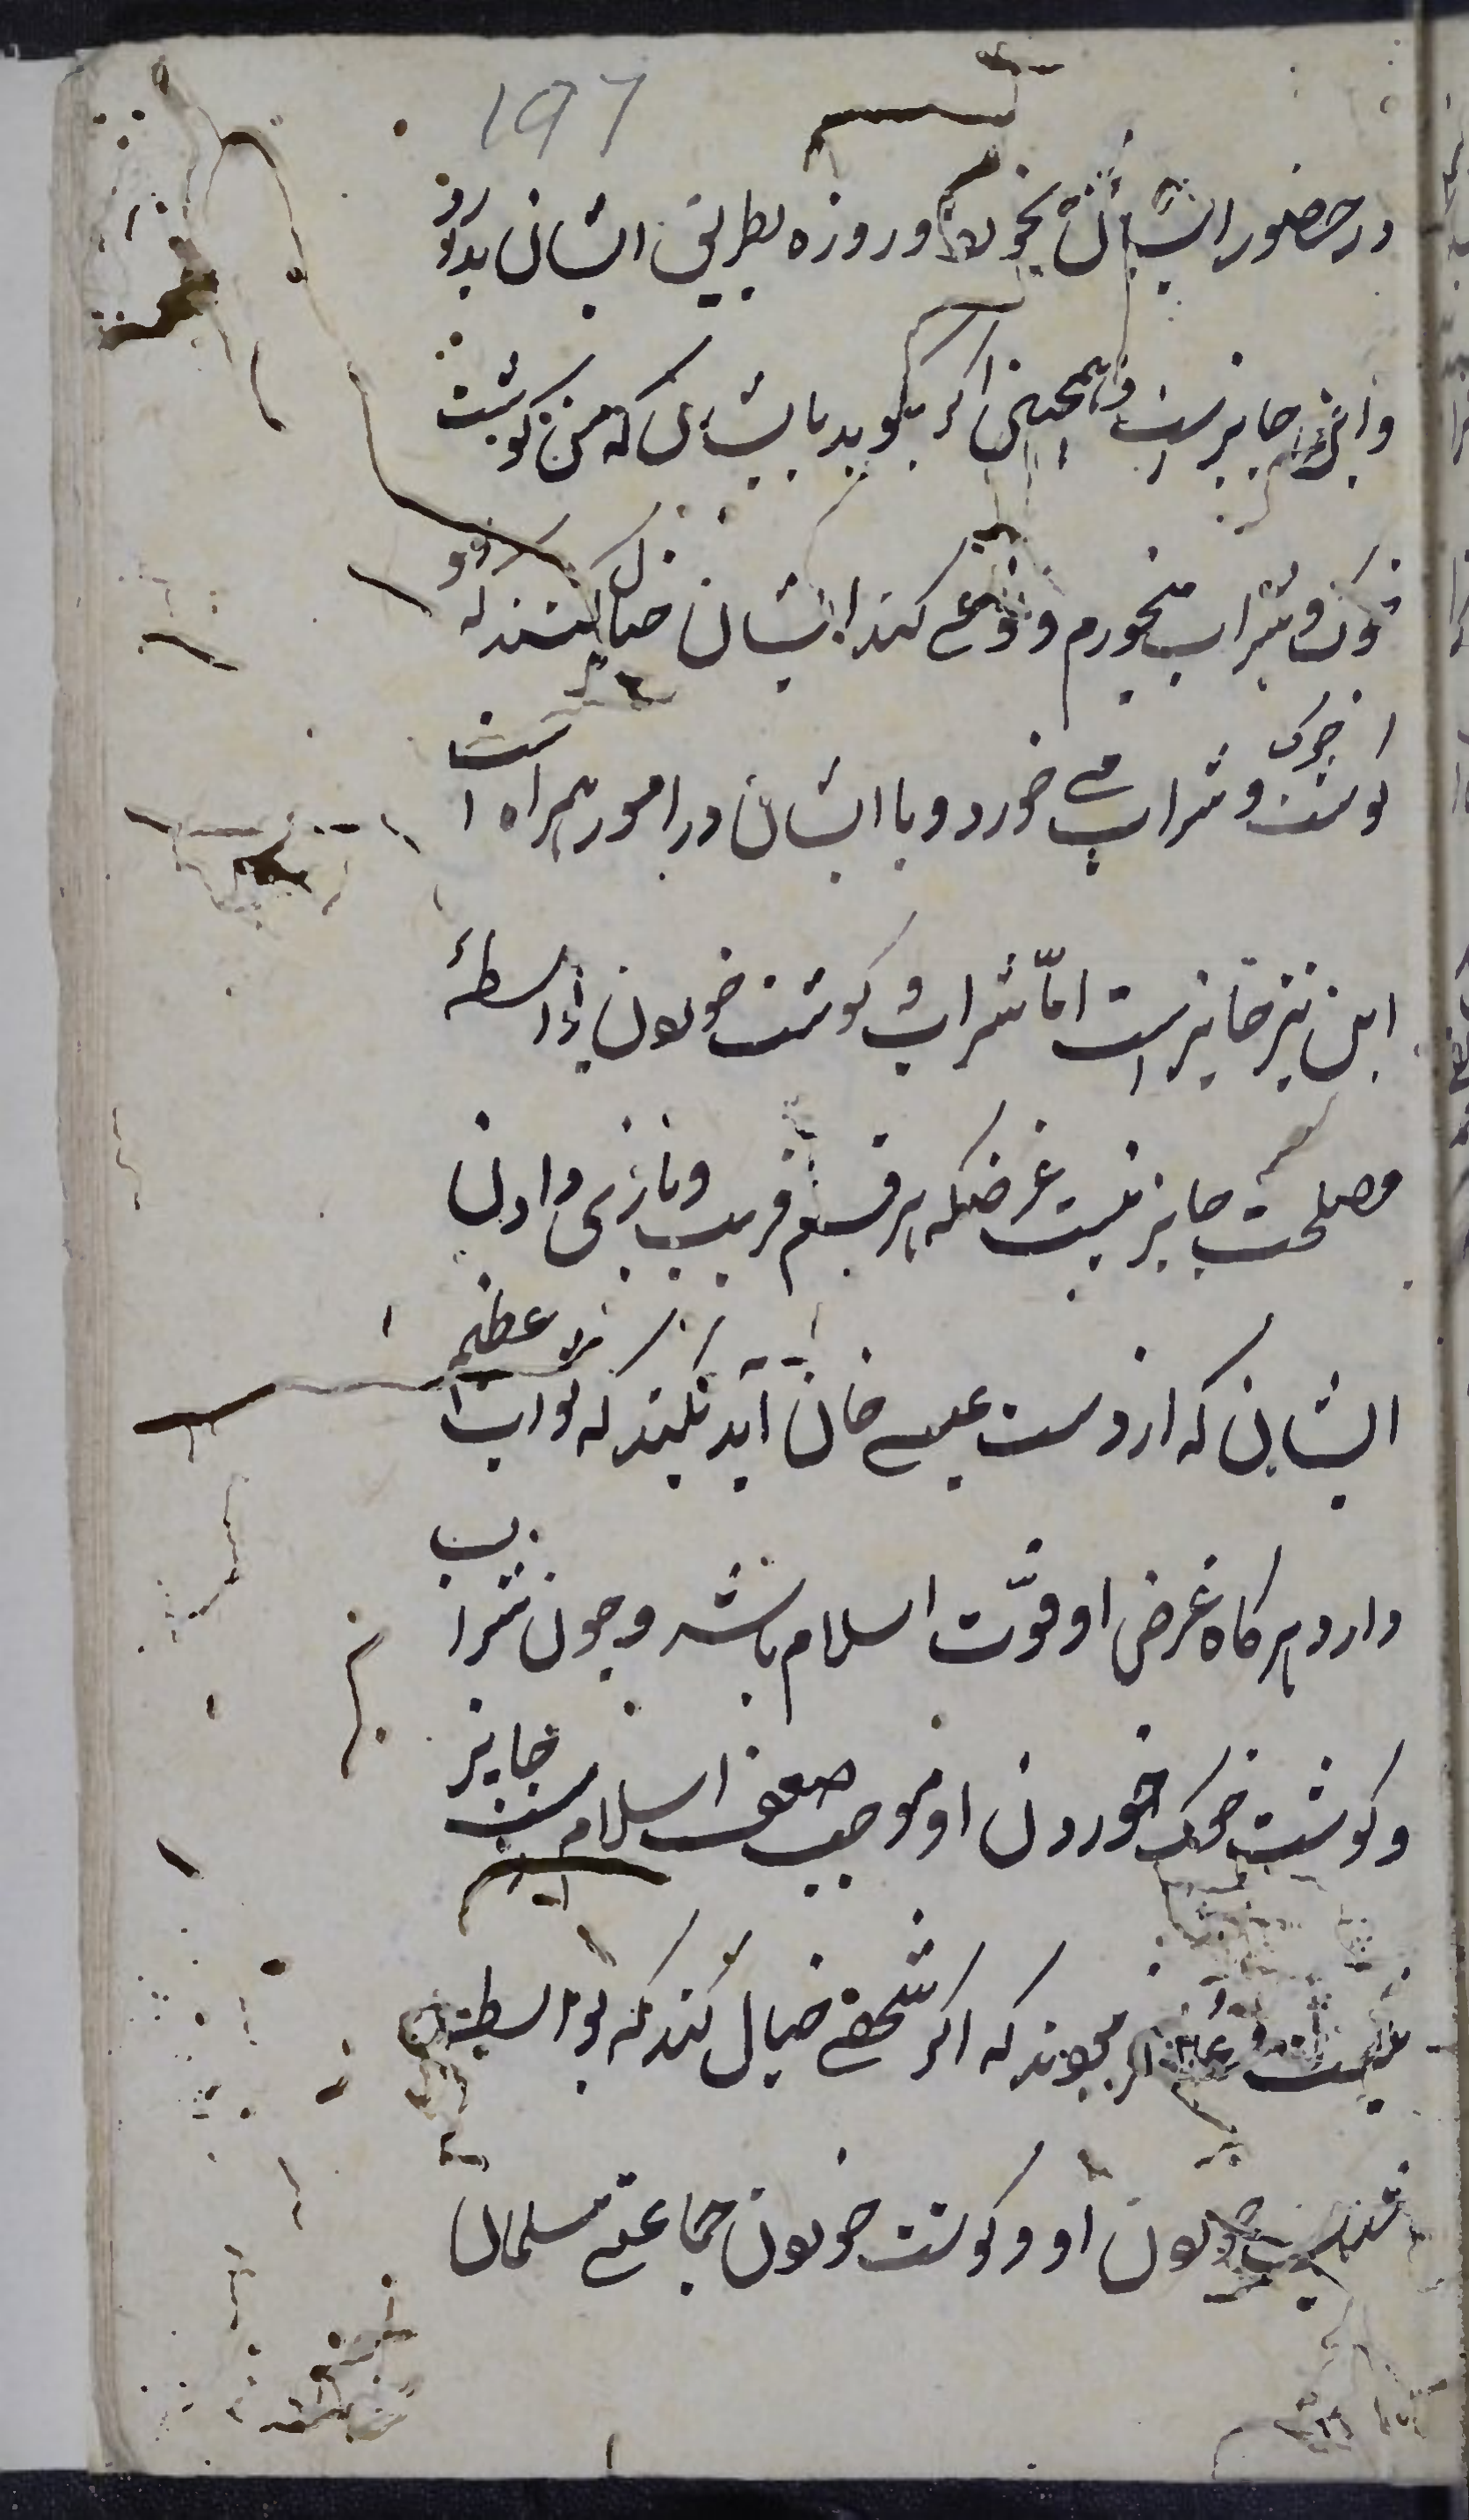 197
در حضور ایشان بخورد و روزه بطریق ایشان بدارد روز
و این جایز است و همچنین اگر بگوید بایشان که من گوشت
خوک و شراب میخورم و نوعی کند ایشان خیال کنند که او
گوشت خوک و شراب می خورد و با ایشان در امور همراه است
این نیز جایز است اما شراب و گوشت خوردن بواسطهٔ
مصلحت جایز نیست غرضکه هر قسم فریب و بازی دادن
ایشان که از دست عیسی خان آید بکند که ثواب عظیم
دارد هرگاه غرض او قوّت اسلام باشد و چون شراب
و گوشت خوک خوردن او موجب ضعف اسلامست جایز
نیست و میگویند که اگر شخصی خیال کند که بواسطهٔ
شراب خوردن او و گوشت خوردن جماعتی مسلمان